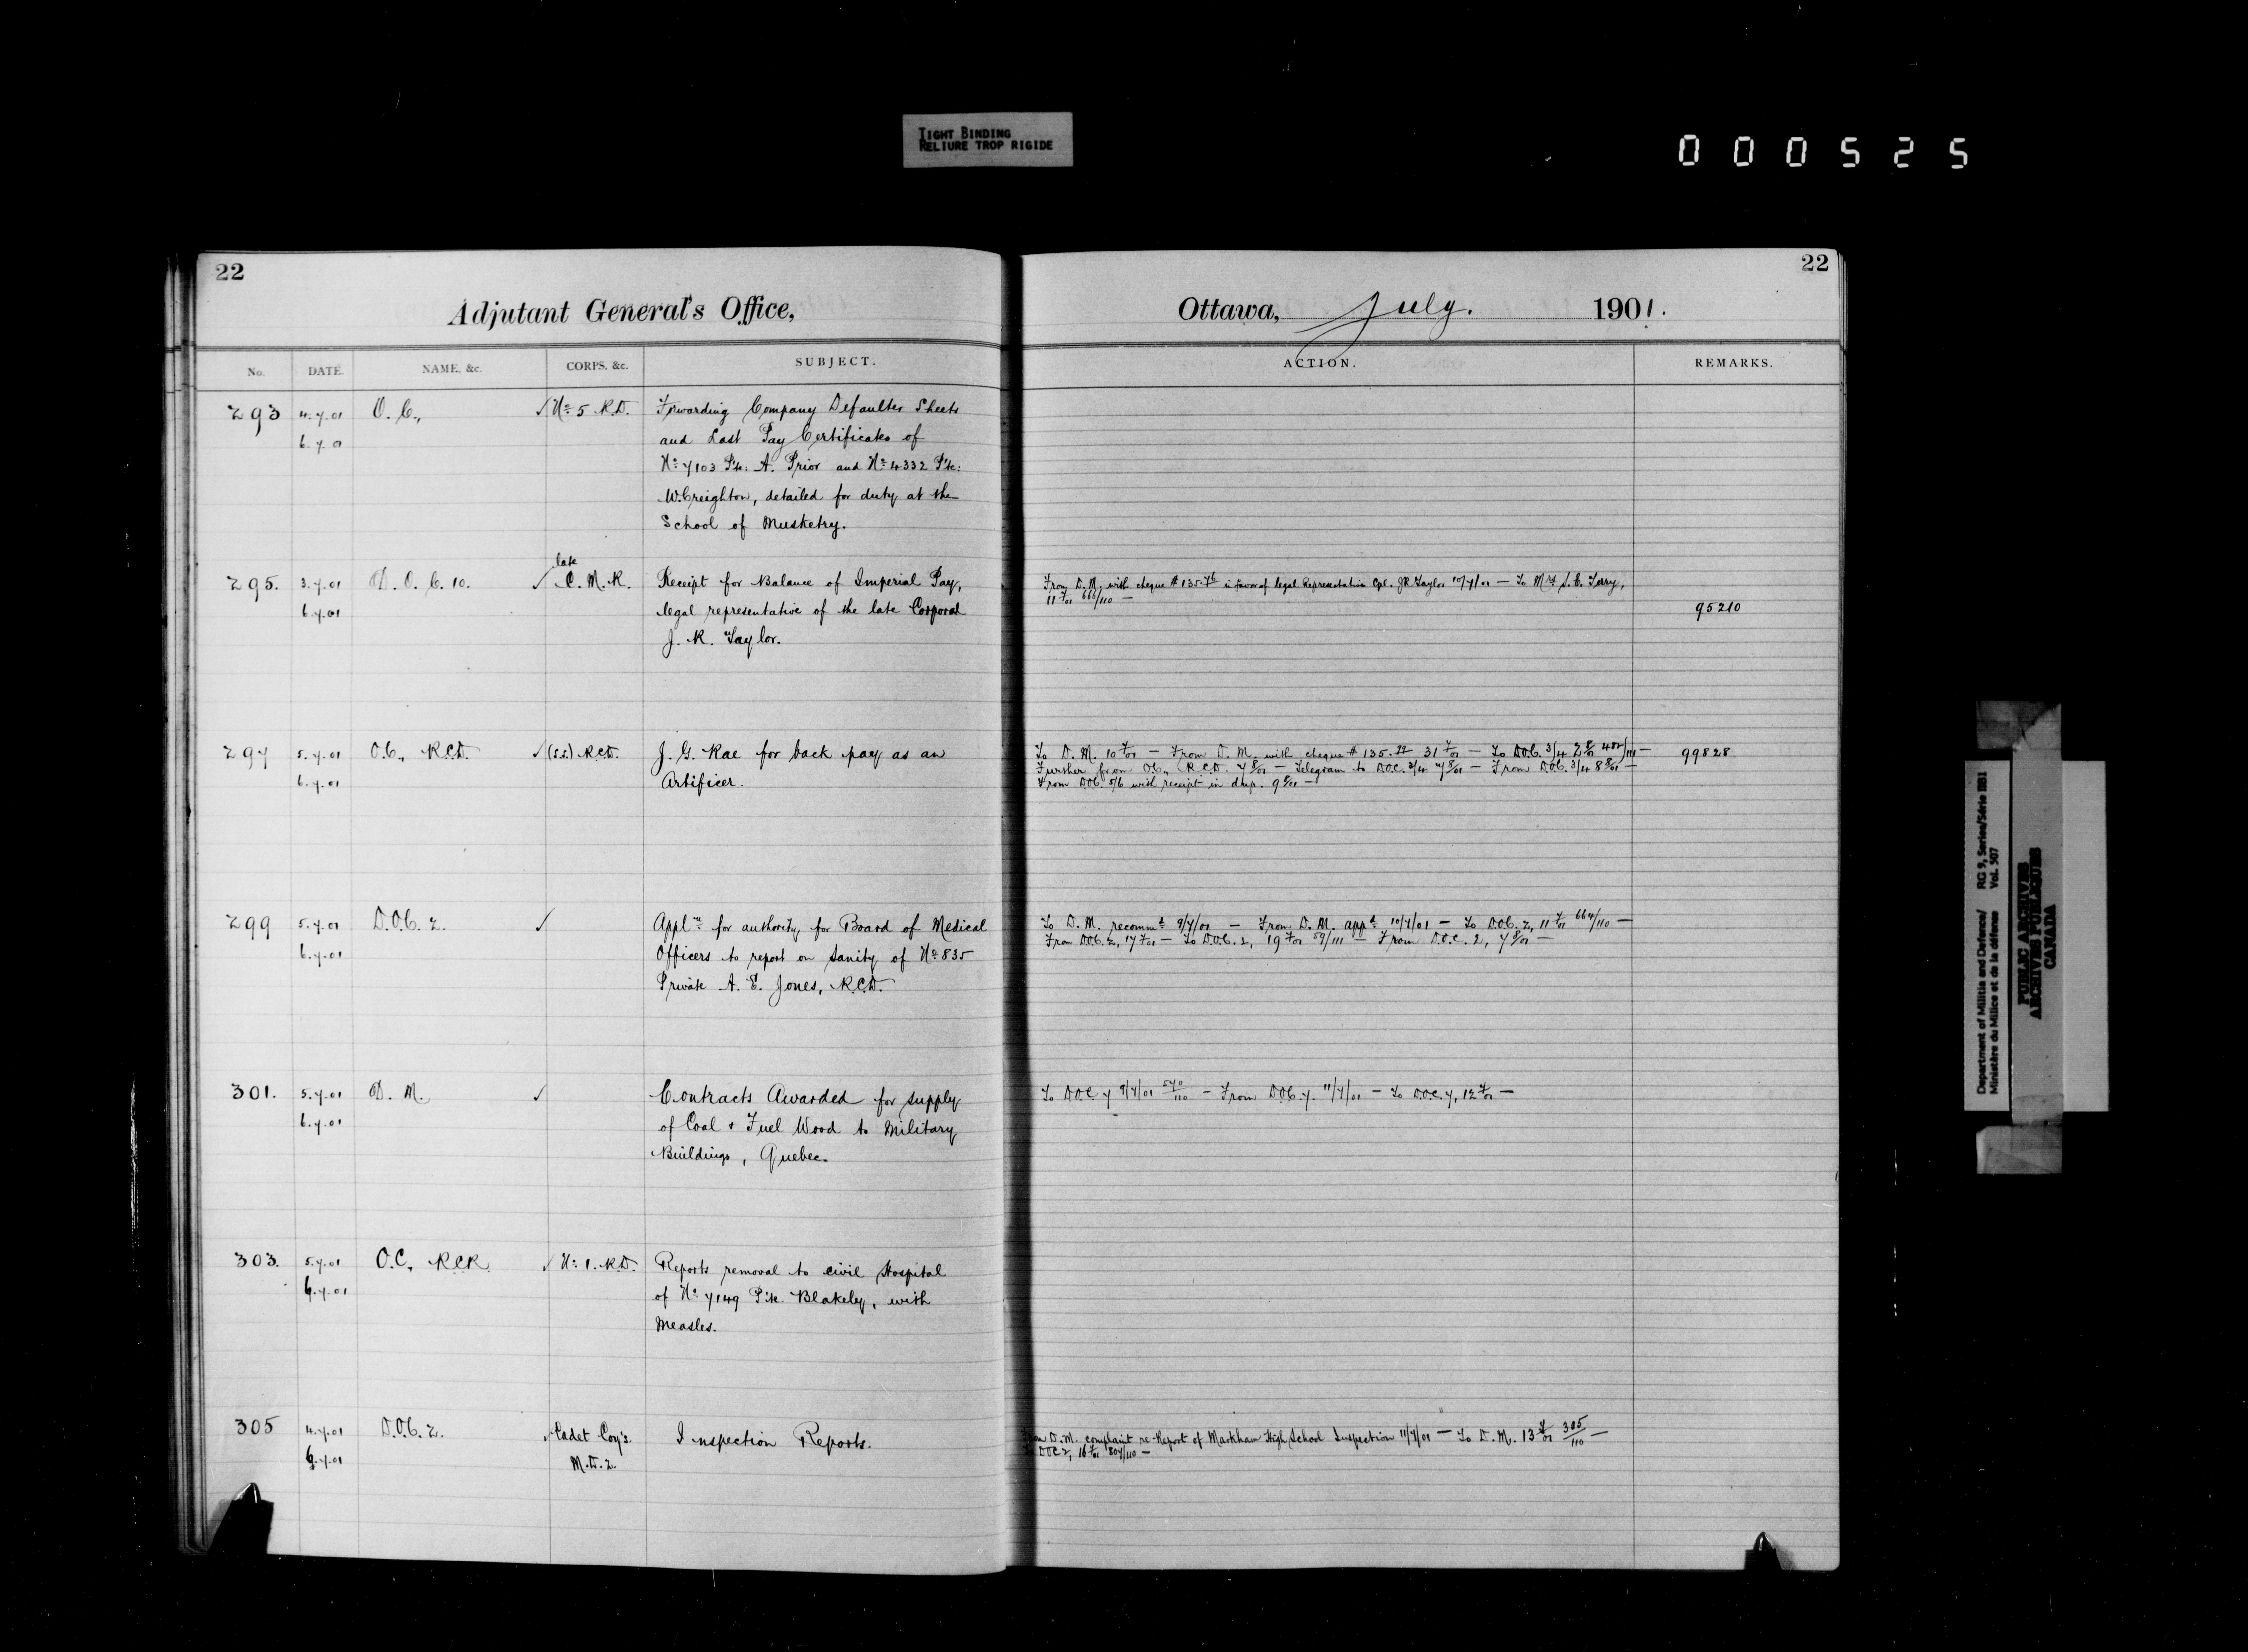 TIGHT BINDING
RELIURE TROP RIGIDE
000525
22
Adjutant General's Office,
No. DATE. NAME, &c. CORPS, &c. SUBJECT.
293 4.7.01 O. C., ✓ No 5 R.D. Forwarding Company Defaulter Sheets
6.7.01 and Last Pay Certificates of
No 7103 Pte: A. Prior and No 4332 Pte:
W. Creighton, detailed for duty at the
School of Musketry.
late
295. 3.7.01 D. O. C. 10. ✓ C. M. R. Receipt for Balance of Imperial Pay,
6.7.01 legal representative of the late Corporal
J. R. Taylor.
297 5.7.01 O.C., R.C.D. ✓ (S.S.) R.C.D. J. G. Rae for back pay as an
6.7.01 Artificer.
299 5.7.01 D.O.C. 2. ✓ Appln for authority for Board of Medical
6.7.01 Officers to report on sanity of No 835
Private A. E. Jones, R.C.D.
301. 5.7.01 D. M. ✓ Contracts Awarded for supply
6.7.01 of Coal & Fuel Wood to Military
Buildings, Quebec.
303. 5.7.01 O.C., RCR. ✓ No 1. R.D. Reports removal to civil Hospital
6.7.01 of No 7149 Pte. Blakely, with
Measles.
305 4.7.01 D.O.C. 2. ✓ Cadet Coy's. Inspection Reports.
6.7.01 M.D. 2.
22
Ottawa, July. 1901.
ACTION. REMARKS.
From D.M. with cheque # 135.76 in favor of legal Representative Cpl. JR Taylor 10/7/01 — To Mrs S. C. Terry,
11 7/01 666/110 —
95210
To D. M. 10 7/01 — From D. M. with cheque # 135. 31 7/01 — To D.O.C. 3/4 2 8/01 482/111 — 99828
Further from OC., R.C.D. 7 8/01 — Telegram to D.O.C. 3/4 7 8/01 — From D.O.C. 3/4 8 8/01 —
From D.O.C. 5/6 with receipt in dup. 9 8/01 —
To D. M. recommd 9/7/01 — From D. M. appd 10/7/01 — To D.O.C. 2, 11 7/01 664/110 —
From D.O.C. 2, 17 7/01 — To D.O.C. 2, 19 7/01 59/111 — From D.O.C. 2, 7 8/01 —
To D.O.C. 7 9/7/01 570/110 — From D.O.C. 7. 11/7/01 — To D.O.C. 7, 12 7/01 —
From D.M. complaint re Report of Markham High School Inspection 11/7/01 — To D. M. 13 7/01 305/110 —
To DOC 2, 16 7/01 807/110 —
Department of Militia and Defence/ RG 9, Series/Série IIB1
Ministère du Milice et de la défense Vol. 507
PUBLIC ARCHIVES
ARCHIVES PUBLIQUES
CANADA